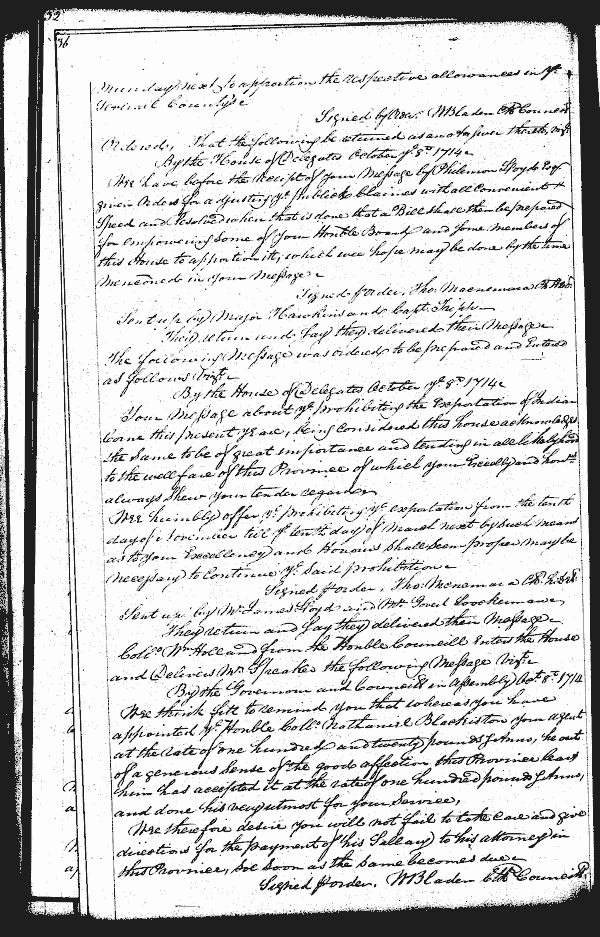 52
36
Munday next to apportion the respective allowances in ye
Severall Countys &c
Signed p order. WBladen Cl Council
Ordered, That the following be returned as an answer thereto, vizt
By the House of Delegates October ye 8th 1714
Wee have before the Receipt of your Message by Philemon Lloyd Esqr
given Orders for adjusting ye publick Claimes with all Convenient
Speed and resolved when that is done that a Bill shall then be prepared
for empowering some of your Honble Board and some members of
this House to apportion itt, which wee hope may be done by the time
mencōned in your Message
Signed p Order, Tho: Macnemara Cl
Sent up by Major Hawkins and Capt. Tripp
They return and say they delivered their Message
The following Message was ordered to be prepared and Entered
as follows Vizt
By the House of Delegates October ye 8th 1714
Your Message about ye prohibiting the Exportation of Indian
Corne this present yeare, being Considered this house acknowledges
the Same to be of great importance and tending in all likelyhood
to the wellfare of this Province of which your Excelly and honrs
always shew your tender regard
Wee humbly offer ye prohibiting ye exportation from the tenth
day of November till ye tenth day of March next by such means
as to your Excellency and Honours shall seem proper may be
necessary to Continue ye said prohibition
Signed p order, Tho: Mcnemara Cl.
Sent up by Mr James Lloyd and Mr Govert Loockerman
They return and say they delivered their Message
Collo Wm Holland from the Honble Councill Enters the House
and Delivers Mr Speaker the following Message Vizt
By the Governour and Councill in Assembly Octr 8th 1714
Wee think fitt to remind you that whereas you have
appointed ye Honble Collo Nathaniel Blackiston your agent
at the rate of one hundred and twenty pounds p Anno, he out
of a generous Sense of the good affection this Province bears
him has accepted it at the rate of one hundred pounds p Anno,
and done his very utmost for your Service,
Wee therefore desire you will not fail to take care and give
directions for the payment of his Sallary to his attorney in
this Province, soe soon as the same becomes due
Signed p order, WBladen Cl Council